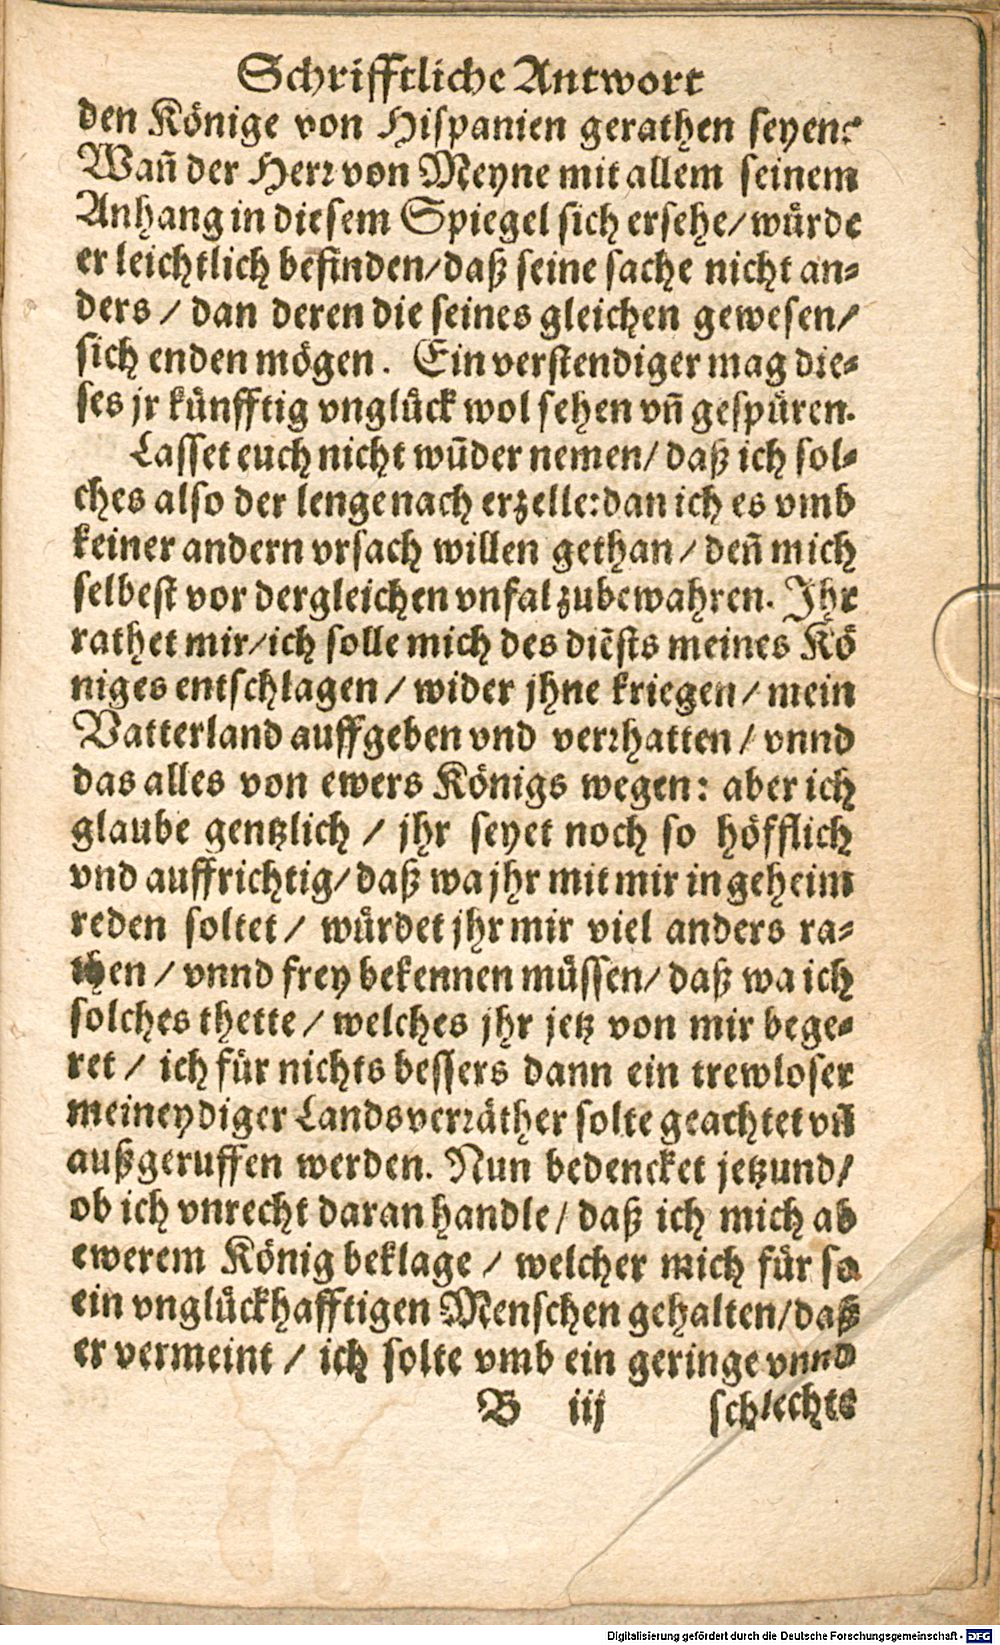 Schrifftliche Antwort
den Könige von Hispanien gerathen seyen?
Wañ der Herr von Meyne mit allem seinem
Anhang in diesem Spiegel sich ersehe/ würde
er leichtlich befinden/ daß seine sache nicht an-
ders / dan deren die seines gleichen gewesen/
sich enden mögen. Ein verstendiger mag die-
ses jr künfftig vnglück wol sehen vñ gespüren.
Lasset euch nicht wūder nemen/ daß ich sol-
ches also der lenge nach erzelle: dan ich es vmb
keiner andern vrsach willen gethan / deñ mich
selbest vor dergleichen vnfal zubewahren. Ihr
rathet mir/ ich solle mich des diēsts meines Kö
niges entschlagen / wider jhne kriegen / mein
Vatterland auffgeben vnd verrhatten / vnnd
das alles von ewers Königs wegen: aber ich
glaube gentzlich / jhr seyet noch so höfflich
vnd auffrichtig/ daß wa jhr mit mir in geheim
reden soltet / würdet jhr mir viel anders ra-
then / vnnd frey bekennen müssen/ daß wa ich
solches thette / welches jhr jetz von mir bege-
ret / ich für nichts bessers dann ein trewloser
meineydiger Landsverräther solte geachtet vñ
außgeruffen werden. Nun bedencket jetzund/
ob ich vnrecht daran handle/ daß ich mich ab
ewerem König beklage / welcher mich für so
ein vnglückhafftigen Menschen gehalten/ daß
er vermeint / ich solte vmb ein geringe vnnd
B iij schlechts
Digitalisierung gefördert durch die Deutsche Forschungsgemeinschaft - DFG